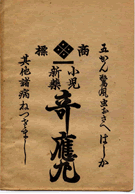 商標
五かん驚風虫おさへはしか
小児
新藥
奇應丸
其他諸病ねつさまし